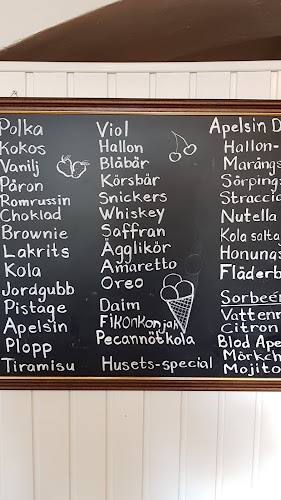 Polka
Kokos
Vanilj
Päron
Romrussin
Choklad
Brownie
Lakrits
Kola
Jordgubb
Pistage
Apelsin
Plopp
Tiramisu
Viol
Hallon
Blåbär
Körsbär
Snickers
Whiskey
Saffran
Ägglikör
Amaretto
Oreo
Daim
Fikonkonjak
Pecannötkola
Husets-special
Apelsin D
Hallon-
Marängs
Sörpings
Straccia
Nutella
Kola salta
Honungs
Fläderb
Sorbeér
Vattenm
Citron
Blod Ape
Mörkch
Mojito